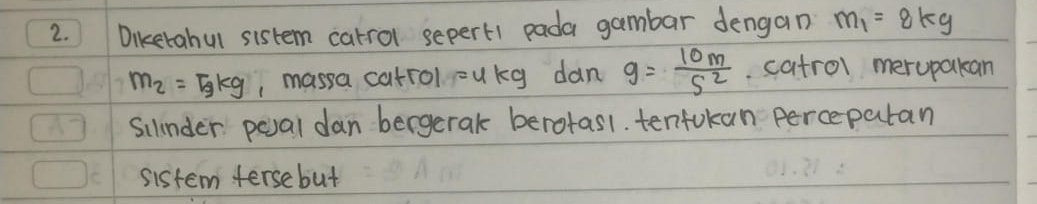 2. Diketahui sistem catrol seperti pada gambar dengan m₁ = 8 kg
m₂ = 5 kg, massa catrol = 4 kg dan g = 10 m / s². catrol merupakan
Silinder pejal dan bergerak berotasi. tentukan Percepatan
sistem tersebut